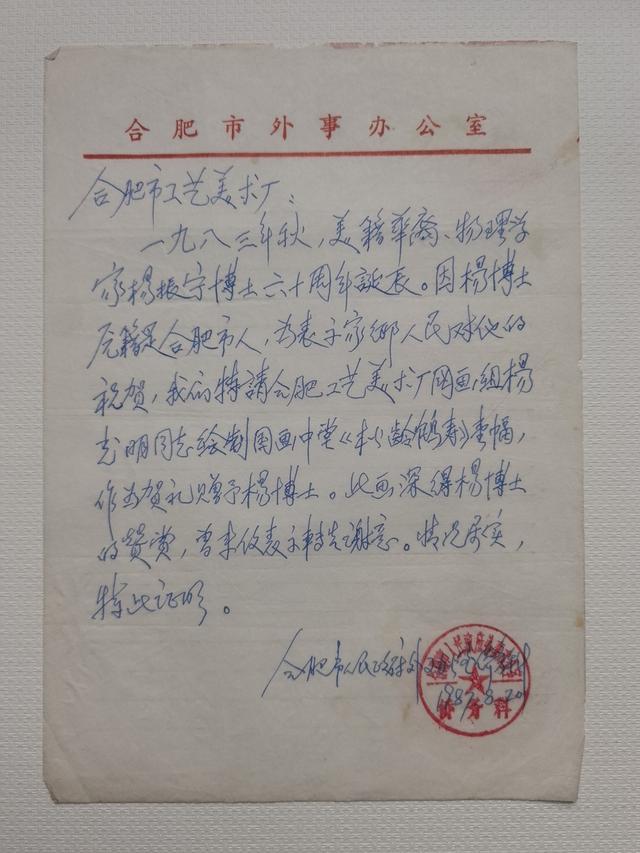 合肥市外事办公室
合肥市工艺美术厂：
一九八三年秋，美籍华裔、物理学
家杨振宁博士六十周年誕辰。因杨博士
原籍是合肥市人，为表示家鄉人民对他的
祝贺，我们特請合肥工艺美术厂国画组杨
光明同志绘制国画中堂《龄鹤寿》壹幅，
作为贺礼赠予杨博士。此画深得杨博士
的赞赏，曾来信表示转告谢意。情况属实，
特此证明。
合肥市人民政府外
198 .8.20